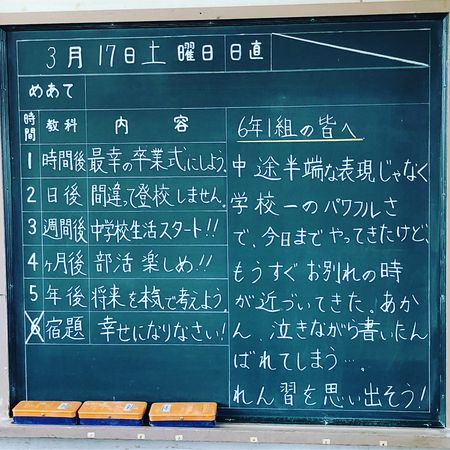 3月17日土曜日 日直
めあて
時間 教科 内容
1 時間後 最幸の卒業式にしよう。
2 日後 間違って登校しません。
3 週間後 中学校生活スタート!!
4 ヶ月後 部活楽しめ!!
5 年後 将来を本気で考えよう。
6 宿題 幸せになりなさい!
6年1組の皆へ
中途半端な表現じゃなく
学校一のパワフルさ
で、今日までやってきたけど、
もうすぐお別れの時
が近づいてきた。あか
ん、泣きながら書いたん
ばれてしまう…。
れん習を思い出そう!